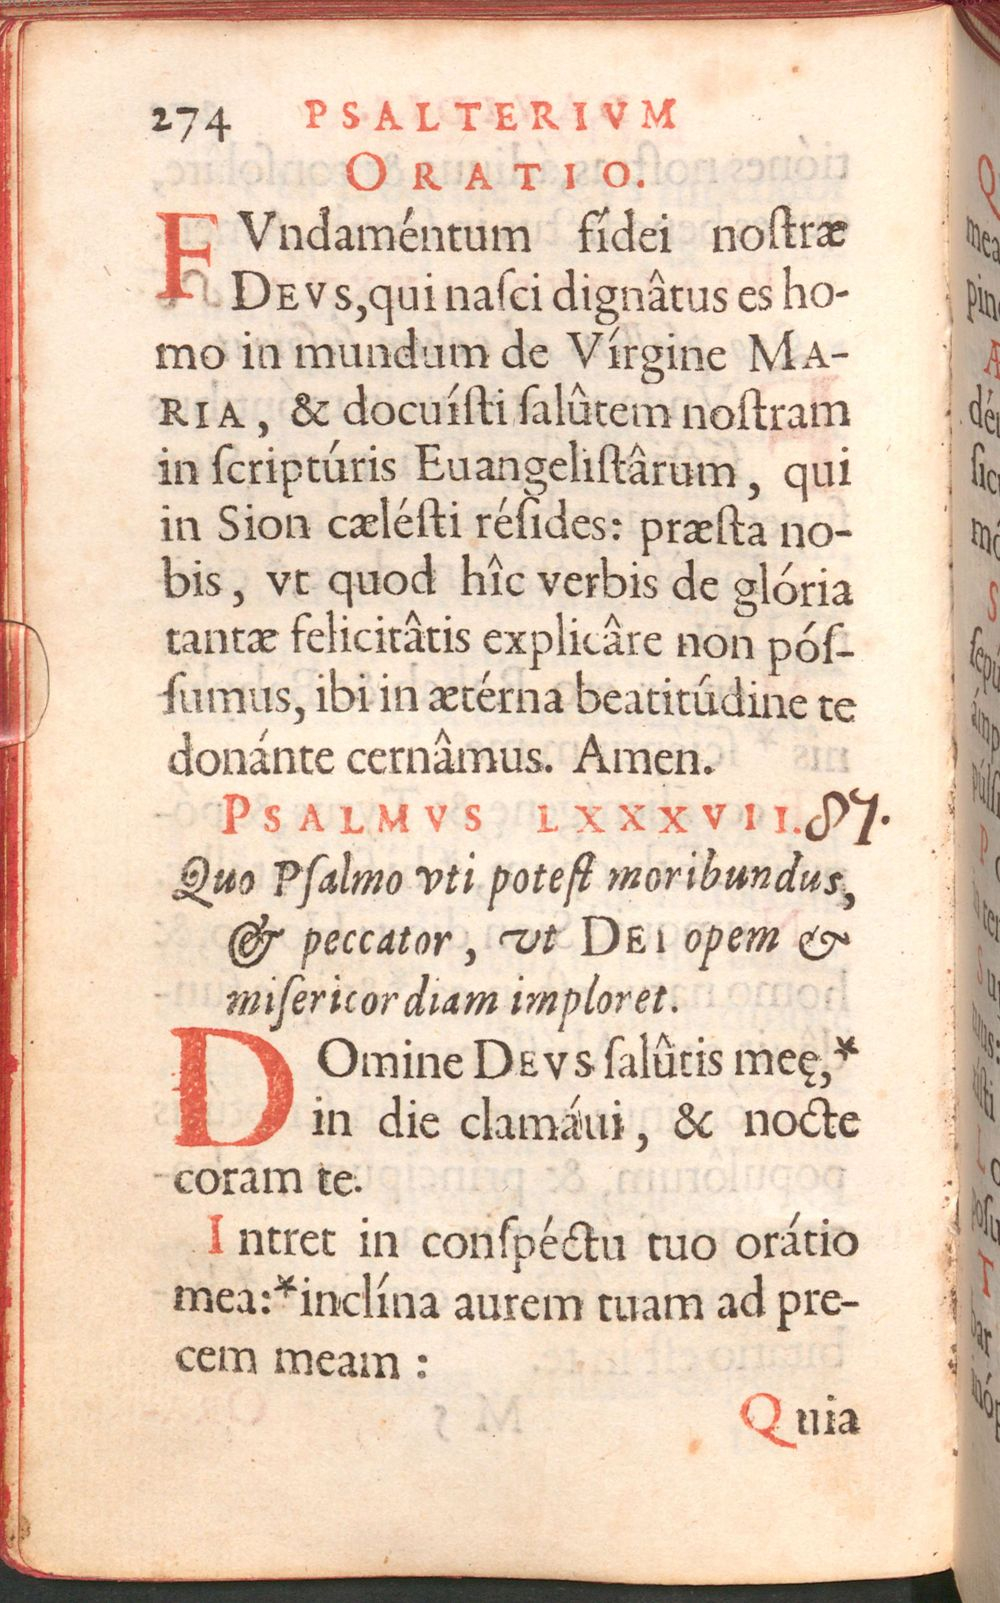 274 PSALTERIVM
ORATIO.
FVndaméntum fídei noſtræ
DEVS, qui naſci dignâtus es ho-
mo in mundum de Vírgine MA-
RIA, & docuíſti ſalûtem noſtram
in ſcriptúris Euangeliſtârum, qui
in Sion cæléſti réſides: præſta no-
bis, vt quod hîc verbis de glória
tantæ felicitâtis explicâre non póſ-
ſumus, ibi in ætérna beatitúdine te
donánte cernâmus. Amen.
PSALMVS LXXXVII. 87.
Quo Pſalmo vti poteſt moribundus,
& peccator, vt DEI opem &
miſericordiam imploret.
DOmine DEVS ſalûtis meę,*
in die clamáui, & nocte
coram te.
Intret in conſpéctu tuo orátio
mea:* inclína aurem tuam ad pre-
cem meam :
Quia